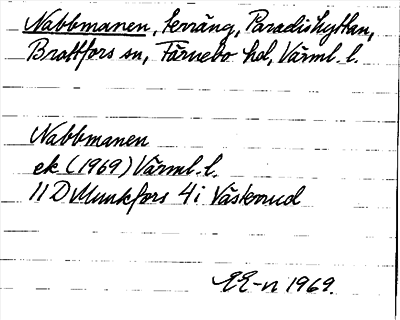 Nabbmanen, terräng, Paradishyttan,
Brattfors sn, Färnebo hd, Värml. l.
Nabbmanen
ek (1969) Värml. l.
11 D Munkfors 4 i Västerrud
EE-n 1969.